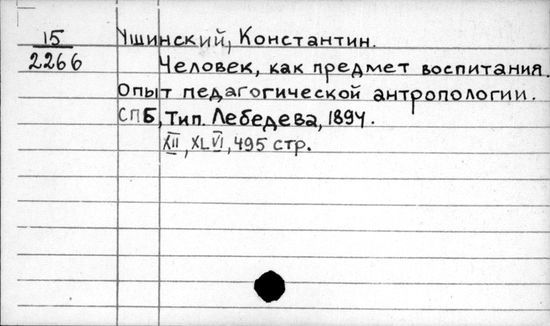 15 Ушинский, Константин.
2266 Человек, как предмет воспитания.
Опыт педагогической антропологии.
СПБ, Тип. Лебедева, 1894.
XII, XLVI, 495 стр.